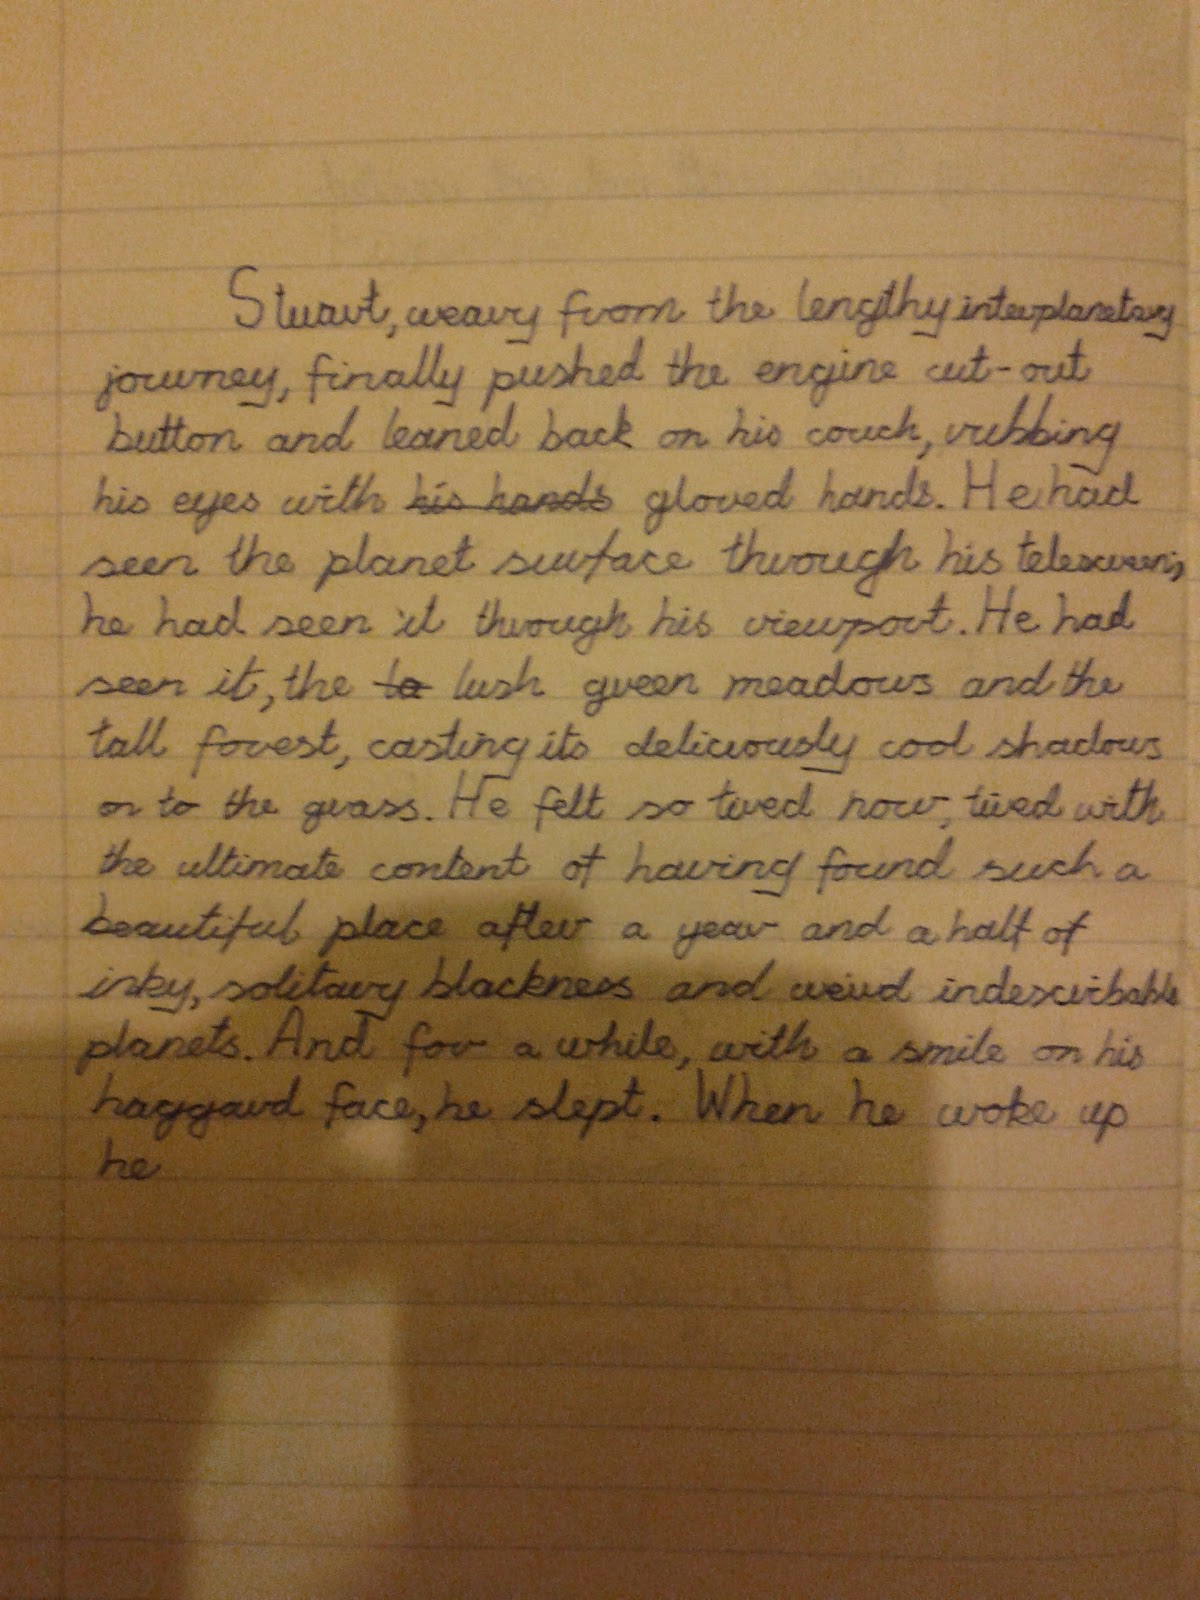 Stuart, weary from the lengthy interplanetary
journey, finally pushed the engine cut-out
button and leaned back on his couch, rubbing
his eyes with his hands gloved hands. He had
seen the planet surface through his telescreen;
he had seen it through his viewport. He had
seen it, the ta lush green meadows and the
tall forest, casting its deliciously cool shadows
on to the grass. He felt so tired now, tired with
the ultimate content of having found such a
beautiful place after a year and a half of
inky, solitary blackness and weird indescribable
planets. And for a while, with a smile on his
haggard face, he slept. When he woke up
he